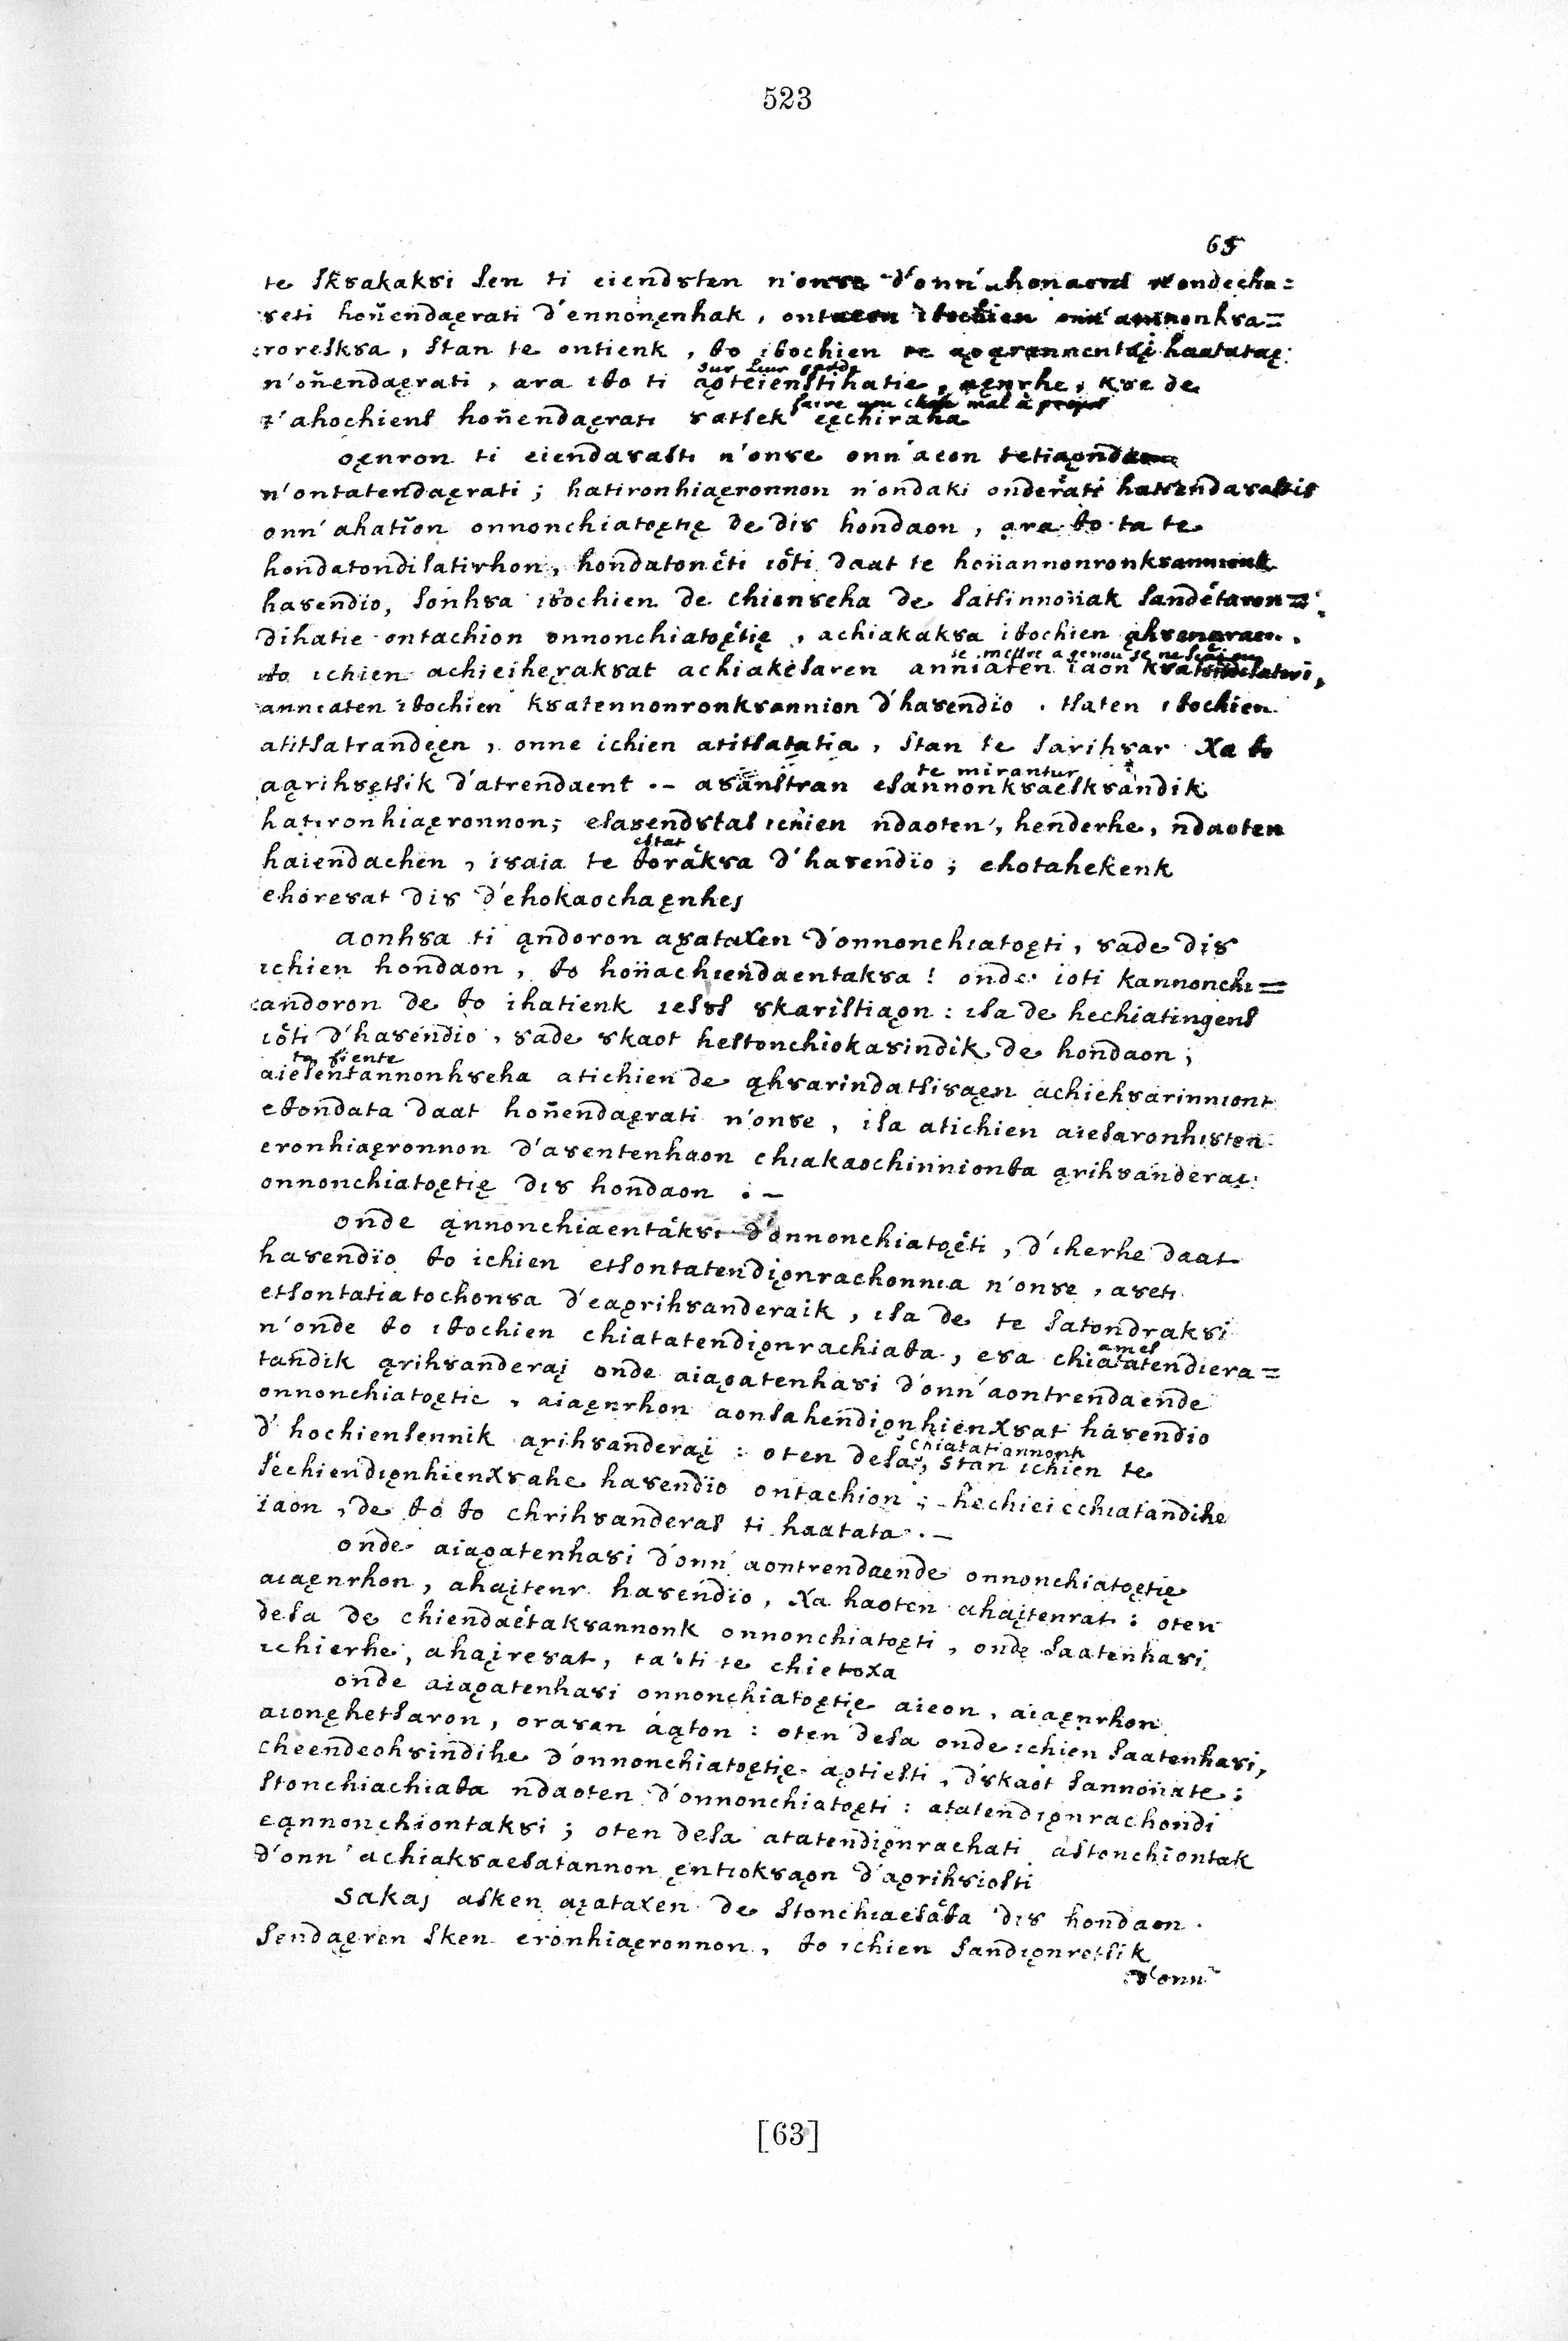 523
65
te skȣakaksi sen ti eiendȣten n'onȣe d'onn'
ȣeti hoñendaęrati d'ennonęnhak,
roreskȣa, stan te ontienk, to itochien te haatataę
sur leur garde
n'oñendaęrati, ara ito ti ąǫteienstihatie, aęnrhe, kȣe de
faire une chose mal à propos
t'ahochiens hoñendaęrati ȣatsek eęchiraha
oęnron ti eiendaȣasti n'onȣe onn'aeon
n'ontatendaęrati; hatironhiaęronnon n'ondaki onderati
onn'ahation onnonchiatoętię de diȣ hondaon, ara to ta te
hondatondisatirhon, hondatonëti ïoti daat te
haȣendio, sonhȣa itochien de chienȣeha de satsinnoñak
dihatie ontachion onnonchiatoętię, achiakakȣa itochien
se mettre a genou
to ichien achieiheraksat achiakesaren anniaten ïaon
anniaten itochien kȣatennonronkȣannion d'haȣendio. tsaten itochien
atitsatrandęen, onne ichien atitsatatia, stan te sarihȣar Xa to
te mirantur
aąrihȣętsik d'atrendaent .- aȣanstran esannonkȣaeskȣandik
hatironhiaęronnon; esaȣendȣtas ichien ndaoten, henderhe, ndaoten
estat
haiendachen, isaia te toräkȣa d'haȣendïo; ehotahekenk
ehoreȣat diȣ d'ehokaochaęnhes
aonhȣa ti ąndoron aȣataxen d'onnonchiatoęti, ȣade diȣ
ichien hondaon, to hoñachiendaentakȣa! onde ioti kannonchi=
andoron de to ihatienk iesȣs ȣkaristiaǫn: isa de hechiatingens
ïoti d'haȣendio, ȣade skaot hestonchiokaȣindik de hondaon;
ta fiente
aiesentannonhȣeha atichien de ąhȣarindatsiȣaęn achiehȣarinniont
etondata daat hoñendaęrati n'onȣe, isa atichien aiesaronhȣten
eronhiaęronnon d'aȣentenhaon chiakaochinnionta ąrihȣanderaį
onnonchiatoętię diȣ hondaon .-
onde ąnnonchiaentakȣi d'onnonchiatoęti, d'iherhe daat
haȣendïo to ichien etsontatendiǫnrachonnia n'onȣe, aȣeti
etsontatiatochonȣa d'eaǫrihȣanderaik, isa de te satondrakȣi
n'onde to itochien chiatatendiǫnrachiata, eȣa chiatatendiera=
ames
tandik ąrihȣanderaį onde aiaǫatenhaȣi d'onn'aontrendaende
onnonchiatoętie, aiaęnrhon aonsahendiǫnhienXȣat haȣendio
d'hochiensennik ąrihȣanderaį: oten desa, stan ichien te
chiatatiannonk
sechiendiǫnhienXȣahe haȣendïo ontachion; hechieiechiatandihe
ïaon, de to to chrihȣanderas ti haatata .-
onde aiaǫatenhaȣi d'onn'aontrendaende onnonchiatoętię
aiaęnrhon, ahaįtenr haȣendïo, Xa haoten ahaįtenrat: oten
desa de chiendaëtakȣannonk onnonchiatoęti, onde saatenhaȣi
ichierhe, ahaįreȣat, ta'oti te chietoxa
onde aiaǫatenhaȣi onnonchiatoętię aieon, aiaęnrhon
aionęhetsaron, oraȣan aąton: oten desa onde ichien saatenhaȣi,
cheendeohȣindihe d'onnonchiatoętię aǫtiesti, d'skaot sannoñate:
stonchiachiata ndaoten d'onnonchiatoęti: atatendiǫnrachondi
eąnnonchiontakȣi; oten desa atatendiǫnrachati astonchiontak
d'onn'achiakȣaesatannon ęntiokȣaǫn d'aǫrihȣiosti
ȣakas asken aįataxen de stonchiaesata diȣ hondaon.
sendaęren sken eronhiaęronnon, to ichien sandiǫnretsik
d'onn
[63]